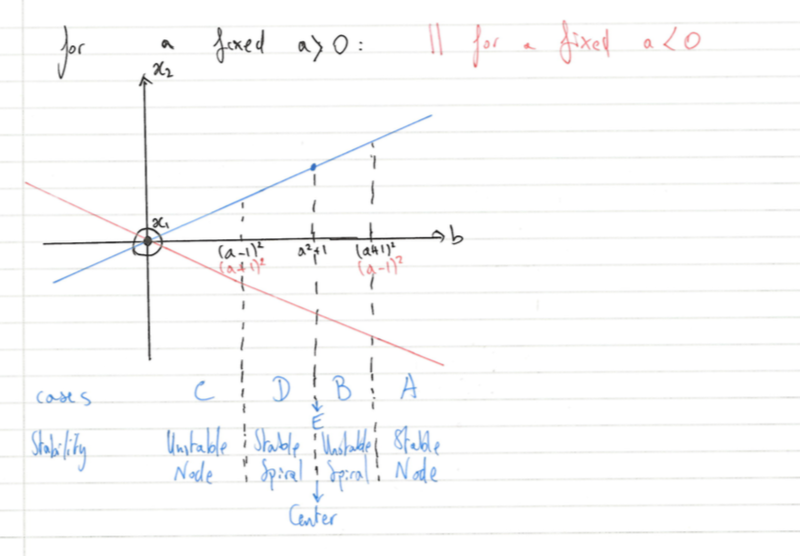 for a fixed a>0: || for a fixed a<0
x₂
x₁
b
(a-1)² a²+1 (a+1)²
(a+1)² (a-1)²
cases C D B A
E
Stability Unstable Stable Unstable Stable
Node Spiral Spiral Node
Center